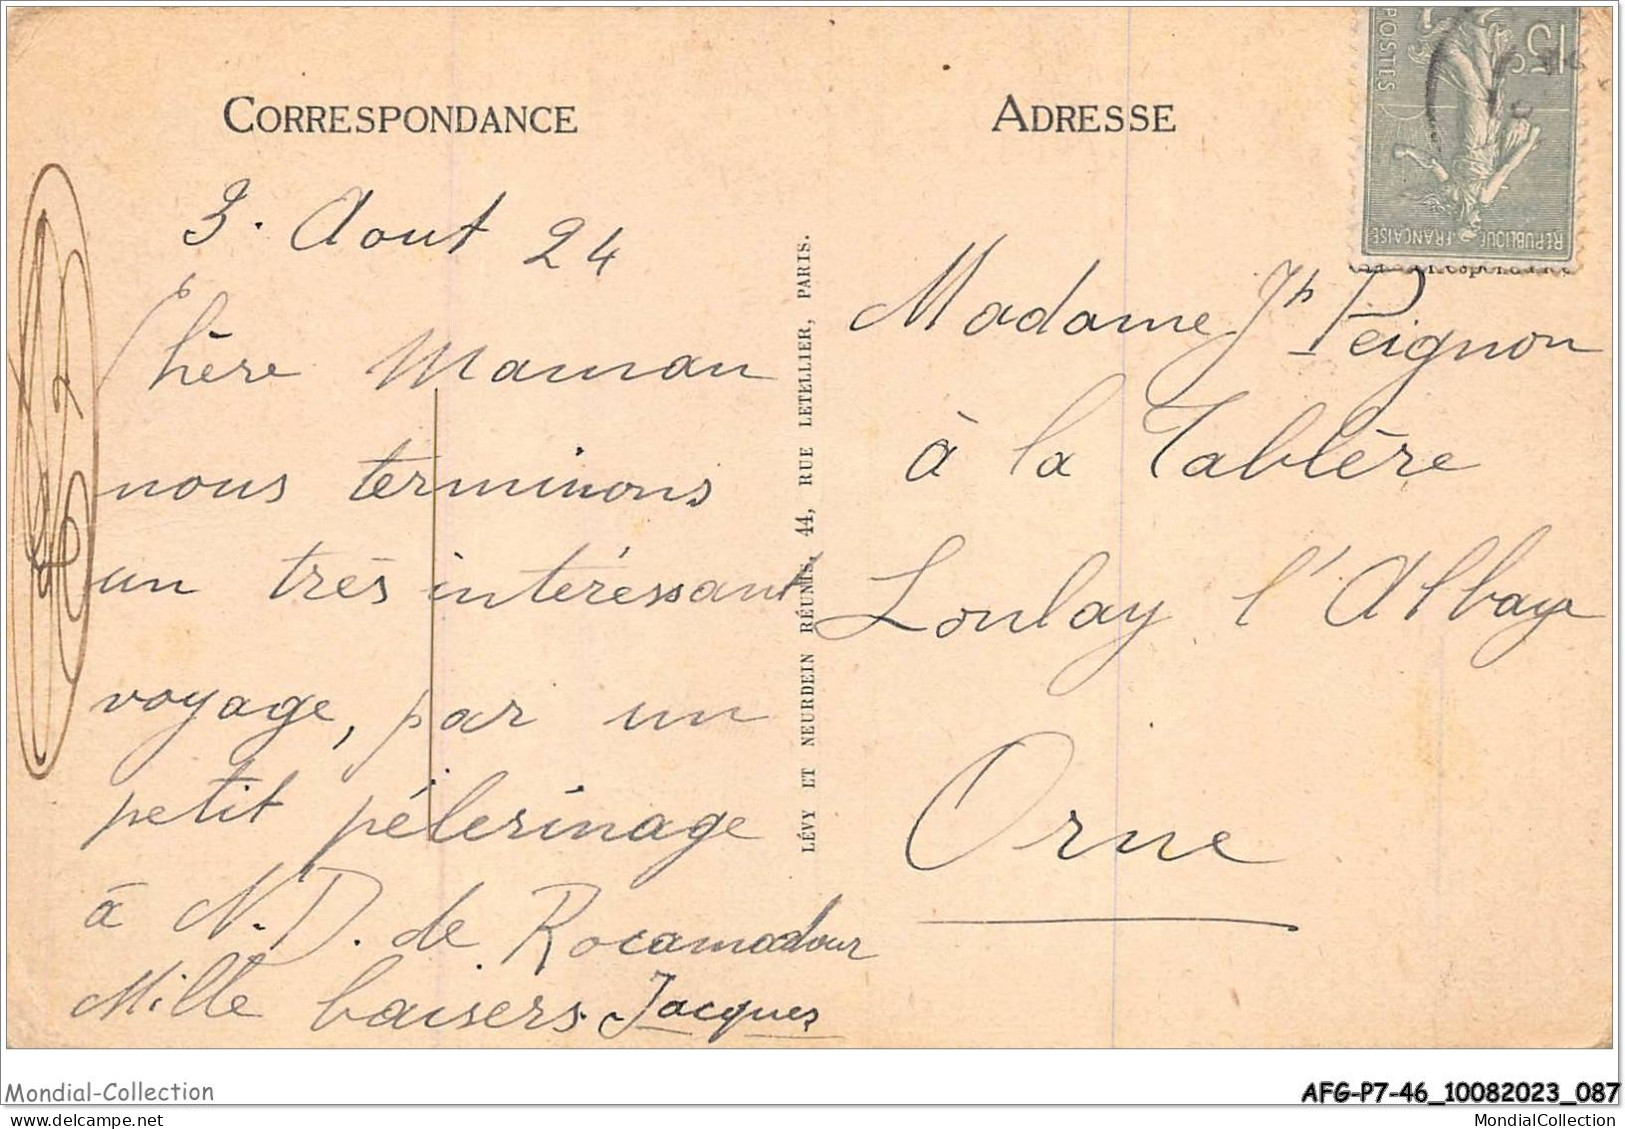 CORRESPONDANCE
3. Aout 24
Chère Maman
nous terminons
un très intéressant
voyage, par un
petit pélerinage
à N.D. de Rocamadour
Mille baisers. Jacques
LÉVY ET NEURDEIN RÉUNIS, 44, RUE LETELLIER, PARIS.
ADRESSE
15c
POSTES
REPUBLIQUE FRANÇAISE
Madame Jh Peignon
à la Tablère
Lonlay l'Abbaye
Orne
Mondial-Collection
AFG-P7-46_10082023_087
delcampe.net
MondialCollection